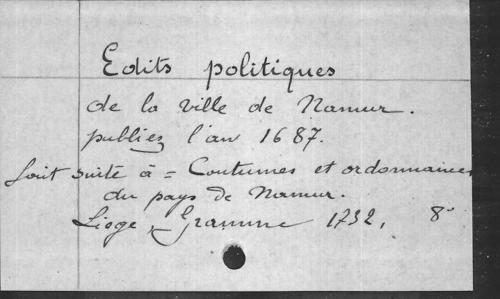 Edits politiques
de la ville de Namur.
publiez l'an 1687.
font suite à = Coutumes et ordonnances
du pays de Namur.
Liège, Gramme 1732, 8°